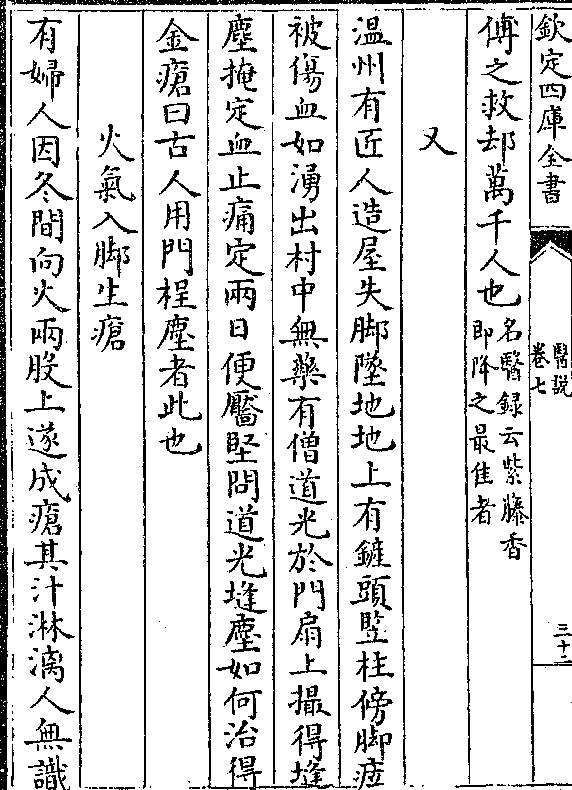 欽定四庫全書
醫說
卷七
三十二
傅之救却萬千人也名醫録云紫藤香
即降之最佳者
又
温州有匠人造屋失脚墜地地上有鏟頭竪柱傍脚㾏
被傷血如湧出村中無藥有僧道光於門扇上撮得塳
塵掩定血止痛定兩日便靨堅問道光塳塵如何治得
金瘡曰古人用門桯塵者此也
火氣入脚生瘡
有婦人因冬間向火兩股上遂成瘡其汁淋漓人無識